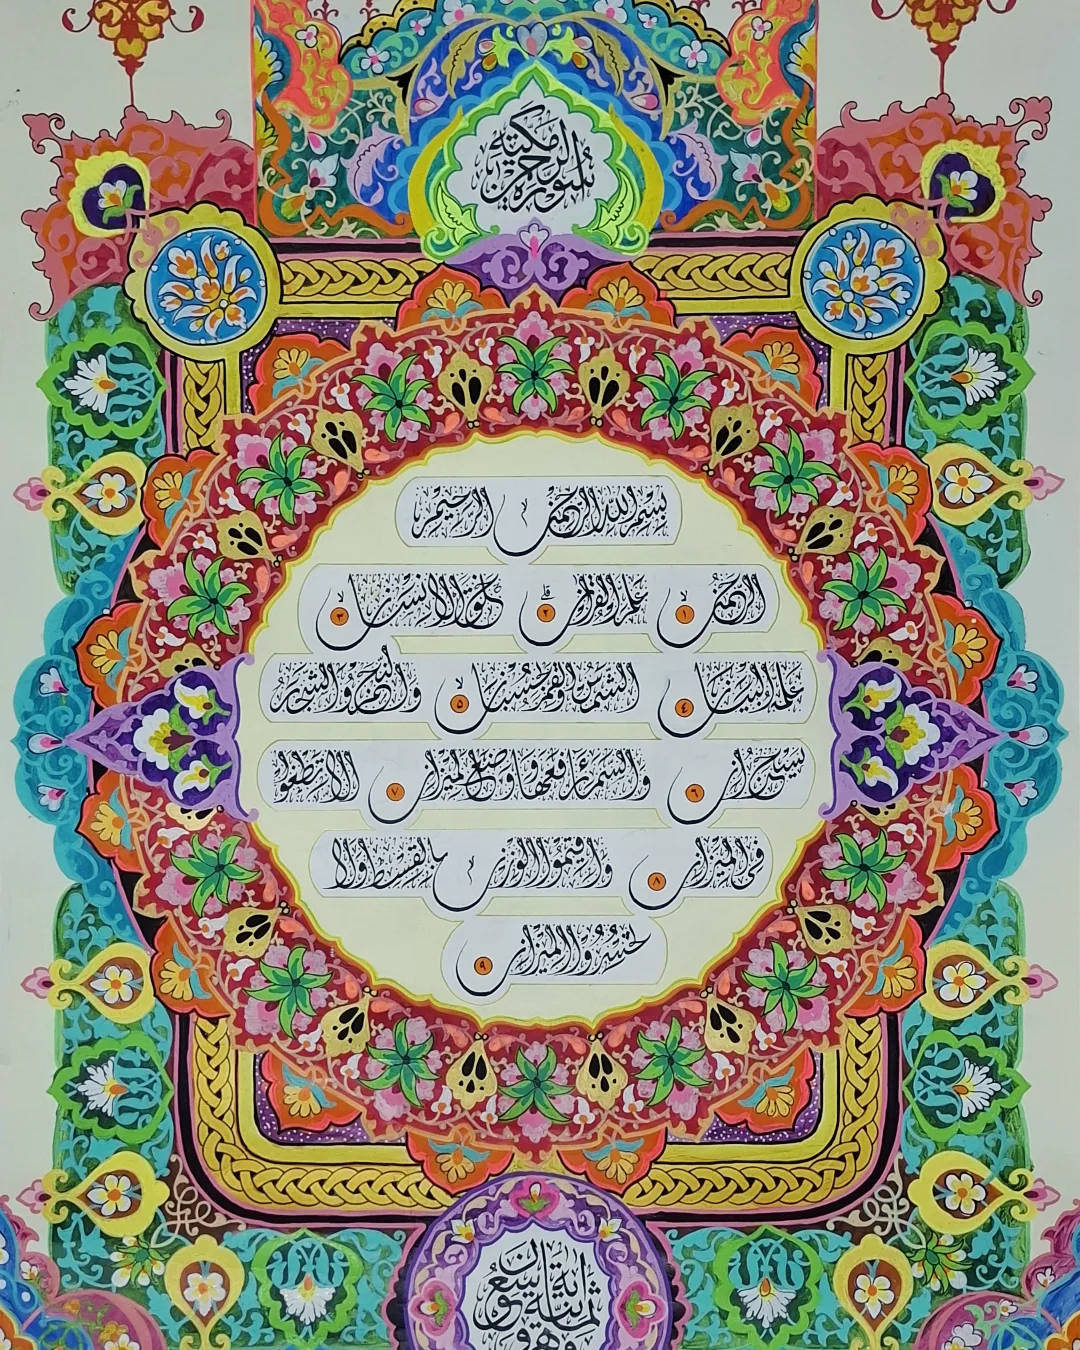 سورة الرحمن مكية
بِسْمِ اللّٰهِ الرَّحْمٰنِ الرَّحِيْمِ
الرَّحْمٰنُ ١ عَلَّمَ الْقُرْاٰنَ ٢ خَلَقَ الْاِنْسَانَ ٣
عَلَّمَهُ الْبَيَانَ ٤ الشَّمْسُ وَالْقَمَرُ بِحُسْبَانٍ ٥ وَالنَّجْمُ وَالشَّجَرُ
يَسْجُدَانِ ٦ وَالسَّمَاءَ رَفَعَهَا وَوَضَعَ الْمِيْزَانَ ٧ اَلَّا تَطْغَوْا
فِى الْمِيْزَانِ ٨ وَاَقِيْمُوا الْوَزْنَ بِالْقِسْطِ وَلَا
تُخْسِرُوا الْمِيْزَانَ ٩